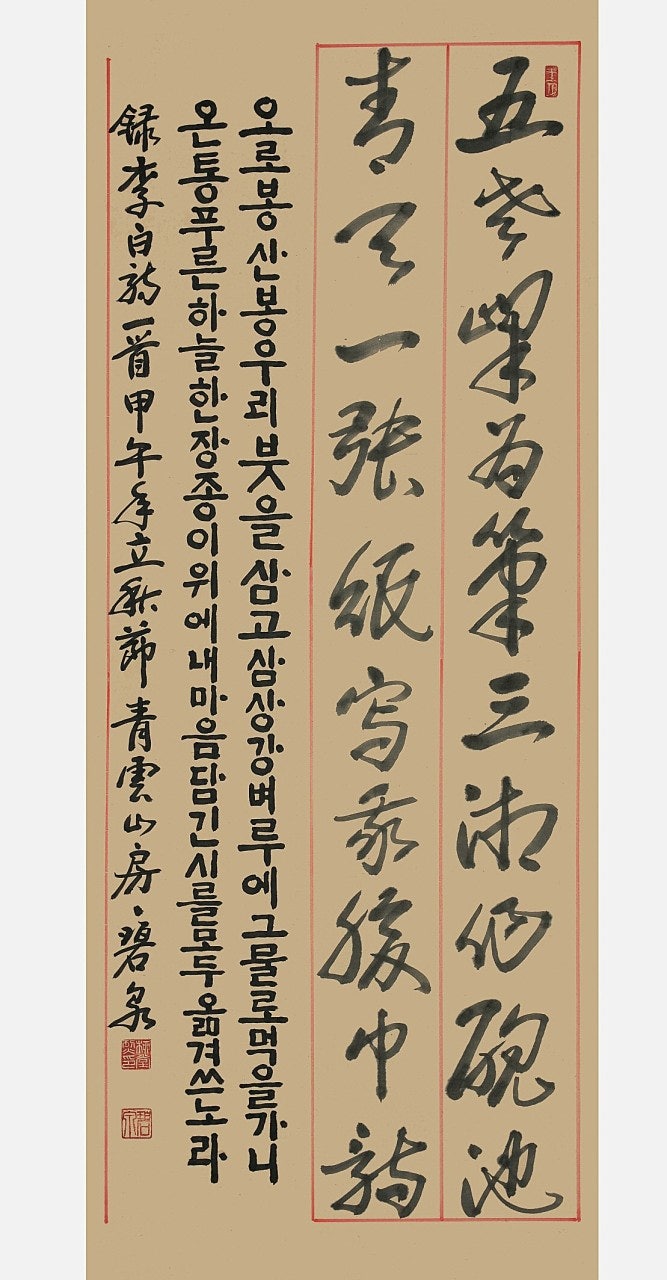 五老峯為筆三湘作硯池
青天一張紙寫我腹中詩
오로봉산봉우리붓을삼고삼상강벼루에그물로먹을가니
온통푸른하늘한장종이위에내마음담긴시를모두옮겨쓰노라
録李白詩一首甲午年立秋節青雲山房、碧泉